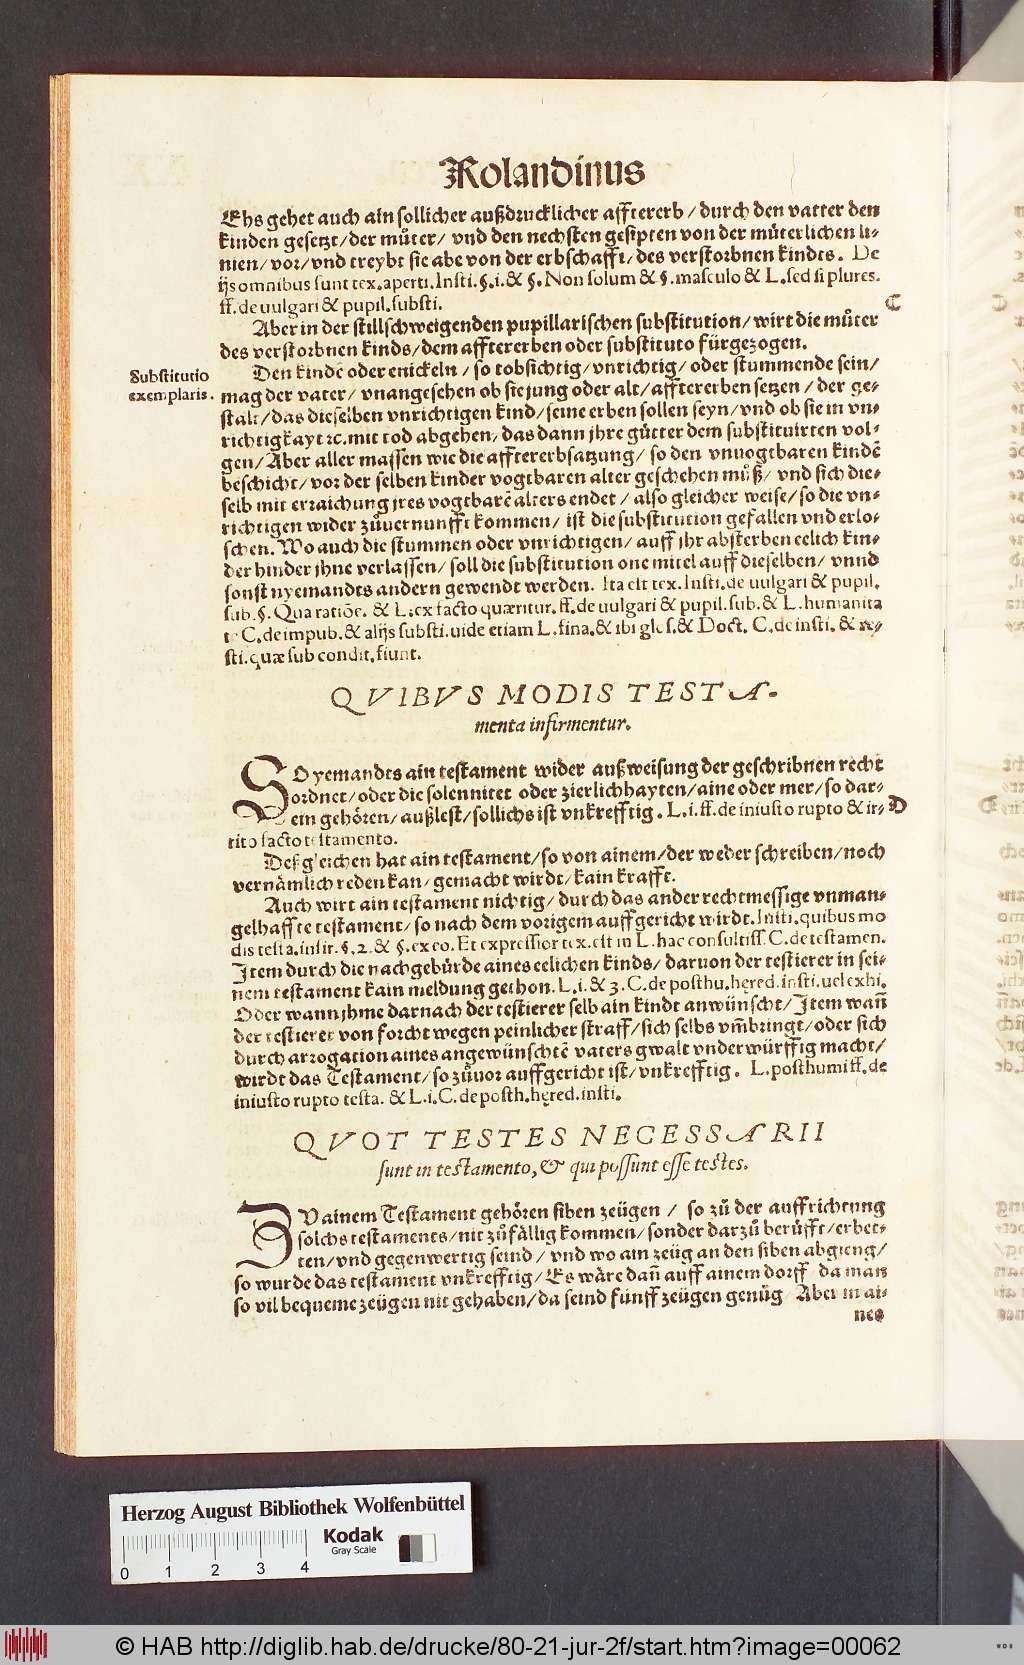 Rolandinus
Ehs gehet auch ain sollicher außdrucklicher afftererb / durch den vatter den
kinden gesetzt / der můter / vnd den nechsten gesipten von der můterlichen li-
nien / vor / vnd treybt sie abe von der erbschafft / des verstorbnen kindts. De
ijs omnibus sunt tex. aperti. Insti. §. i. & §. Non solum & §. masculo & L. sed si plures.
ff. de uulgari & pupil. substi.
C
Aber in der stillschweigenden pupillarischen substitution / wirt die můter
des verstorbnen kinds / dem afftererben oder substituto fürgezogen.
Substitutio
exemplaris.
Den kindē oder enickeln / so tobsichtig / vnrichtig / oder stummende sein /
mag der vater / vnangesehen ob sie jung oder alt / afftererben setzen / der ge-
stalt / das dieselben vnrichtigen kind / seine erben sollen seyn / vnd ob sie in vn-
richtigkayt ꝛc. mit tod abgehen / das dann jhre gůtter dem substituirten vol-
gen / Aber aller massen wie die afftererbsatzung / so den vnuogtbaren kindē
beschicht / vor der selben kinder vogtbaren alter geschehen můß / vnd sich die-
selb mit erraichung jres vogtbarē alters endet / also gleicher weise / so die vn-
richtigen wider zůuernunfft kommen / ist die substitution gefallen vnd erlo-
schen. Wo auch die stummen oder vnrichtigen / auff jhr absterben eelich kin-
der hinder jhne verlassen / soll die substitution one mitel auff dieselben / vnnd
sonst nyemandts andern gewendt werden. Ita est tex. Insti. de uulgari & pupil.
sub. §. Qua ratiōe. & L. ex facto quæritur. ff. de uulgari & pupil. sub. & L. humanita
te C. de impub. & alijs substi. uide etiam L. fina. & ibi glos. & Doct. C. de insti. & re-
sti. quæ sub condit. fiunt.
QVIBVS MODIS TESTA-
menta infirmentur.
SO yemandts ain testament wider außweisung der geschribnen recht
ordnet / oder die solennitet oder zierlichhayten / aine oder mer / so dar-
ein gehören / außlest / sollichs ist vnkrefftig. L. i. ff. de iniusto rupto & ir-
D
rito facto testamento.
Deßgleichen hat ain testament / so von ainem / der weder schreiben / noch
vernämlich reden kan / gemacht wirdt / kain krafft.
Auch wirt ain testament nichtig / durch das ander rechtmessige vnman-
gelhaffte testament / so nach dem vorigem auffgericht wirdt. Insti. quibus mo
dis testa. infir. §. 2. & §. ex eo. Et expressior tex. est in L. hac consultiss. C. de testamen.
Item durch die nachgebürde aines eelichen kinds / daruon der testierer in sei-
nem testament kain meldung gethon. L. i. & 3. C. de posthu. hęred. insti. uel exhi.
Oder wann jhme darnach der testierer selb ain kindt anwünscht / Item wañ
der testierer von forcht wegen peinlicher straff / sich selbs vm̄bringt / oder sich
durch arrogation aines angewünschtē vaters gwalt vnderwürffig macht /
wirdt das Testament / so zůuor auffgericht ist / vnkrefftig. L. posthumi ff. de
iniusto rupto testa. & L. i. C. de posth. hęred. insti.
QVOT TESTES NECESSARII
sunt in testamento, & qui possunt esse testes.
ZV ainem Testament gehören siben zeügen / so zů der auffrichtung
solchs testaments / nit zůfällig kommen / sonder darzů berůfft / erbet-
ten / vnd gegenwertig seind / vnd wo ain zeüg an den siben abgieng /
so wurde das testament vnkrefftig / Es wäre dañ auff ainem dorff da man
so vil bequeme zeügen nit gehaben / da seind fünff zeügen genůg Aber in ai-
nes
Herzog August Bibliothek Wolfenbüttel
Kodak
Gray Scale
0 1 2 3 4
© HAB http://diglib.hab.de/drucke/80-21-jur-2f/start.htm?image=00062